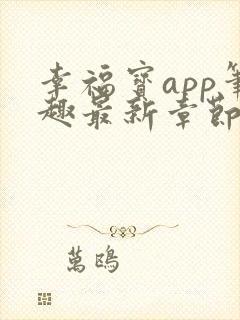 幸福寳app筆
趣最新章節
萬鴎